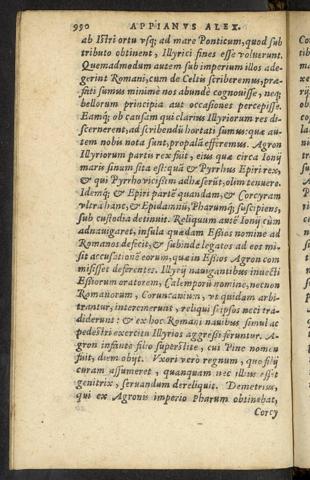 990 APPIANVS ALEX.
ab Istri ortu vsq; ad mare Ponticum, quod sub
tributo obtinent, Illyrici fines esse voluerunt.
Quemadmodum autem sub imperium illos ade-
gerint Romani, cum de Celtis scriberemus, præ-
fati sumus minimè nos abundè cognouisse, neq;
bellorum principia aut occasiones percepisse.
Eamq; ob causam qui clarius Illyriorum res di-
scernerent, ad scribendũ hortati sumus: quæ au-
tem nobis nota sunt, propalã efferemus. Agron
Illyriorum partis rex fuit, eius quæ circa Ionij
maris sinum sita est: quã & Pyrrhus Epiri rex,
& qui Pyrrho vicissim adhæserũt, olim tenuere.
Idemq; & Epiri partẽ quandam, & Corcyram
vltrà hanc, & Epidamnũ, Pharumq; suscipiens,
sub custodia detinuit. Reliquum autẽ Ioniũ cùm
adnauigaret, insula quædam Essios nomine ad
Romanos defecit, & subinde legatos ad eos mi-
sit accusationẽ eorum, quæ in Essios Agron com
misisset deferentes. Illyrij nauigantibus inuecti
Essiorum oratorem, Calemporũ nomine, necnon
Romanorum, Coruncanium, vt quidam arbi-
trantur, interemerunt, reliqui seipsos neci tra-
diderunt: & ex hoc Romani nauibus simul ac
pedestri exercitu Illyrios aggressi feruntur. A-
gron infante filio superstite, cui Pine nomen
fuit, diem obijt. Vxori verò regnum, quo filij
curam assumeret, quanquam nec illius esset
genitrix, seruandum dereliquit. Demetrius,
qui ex Agronis imperio Pharum obtinebat,
Corcy